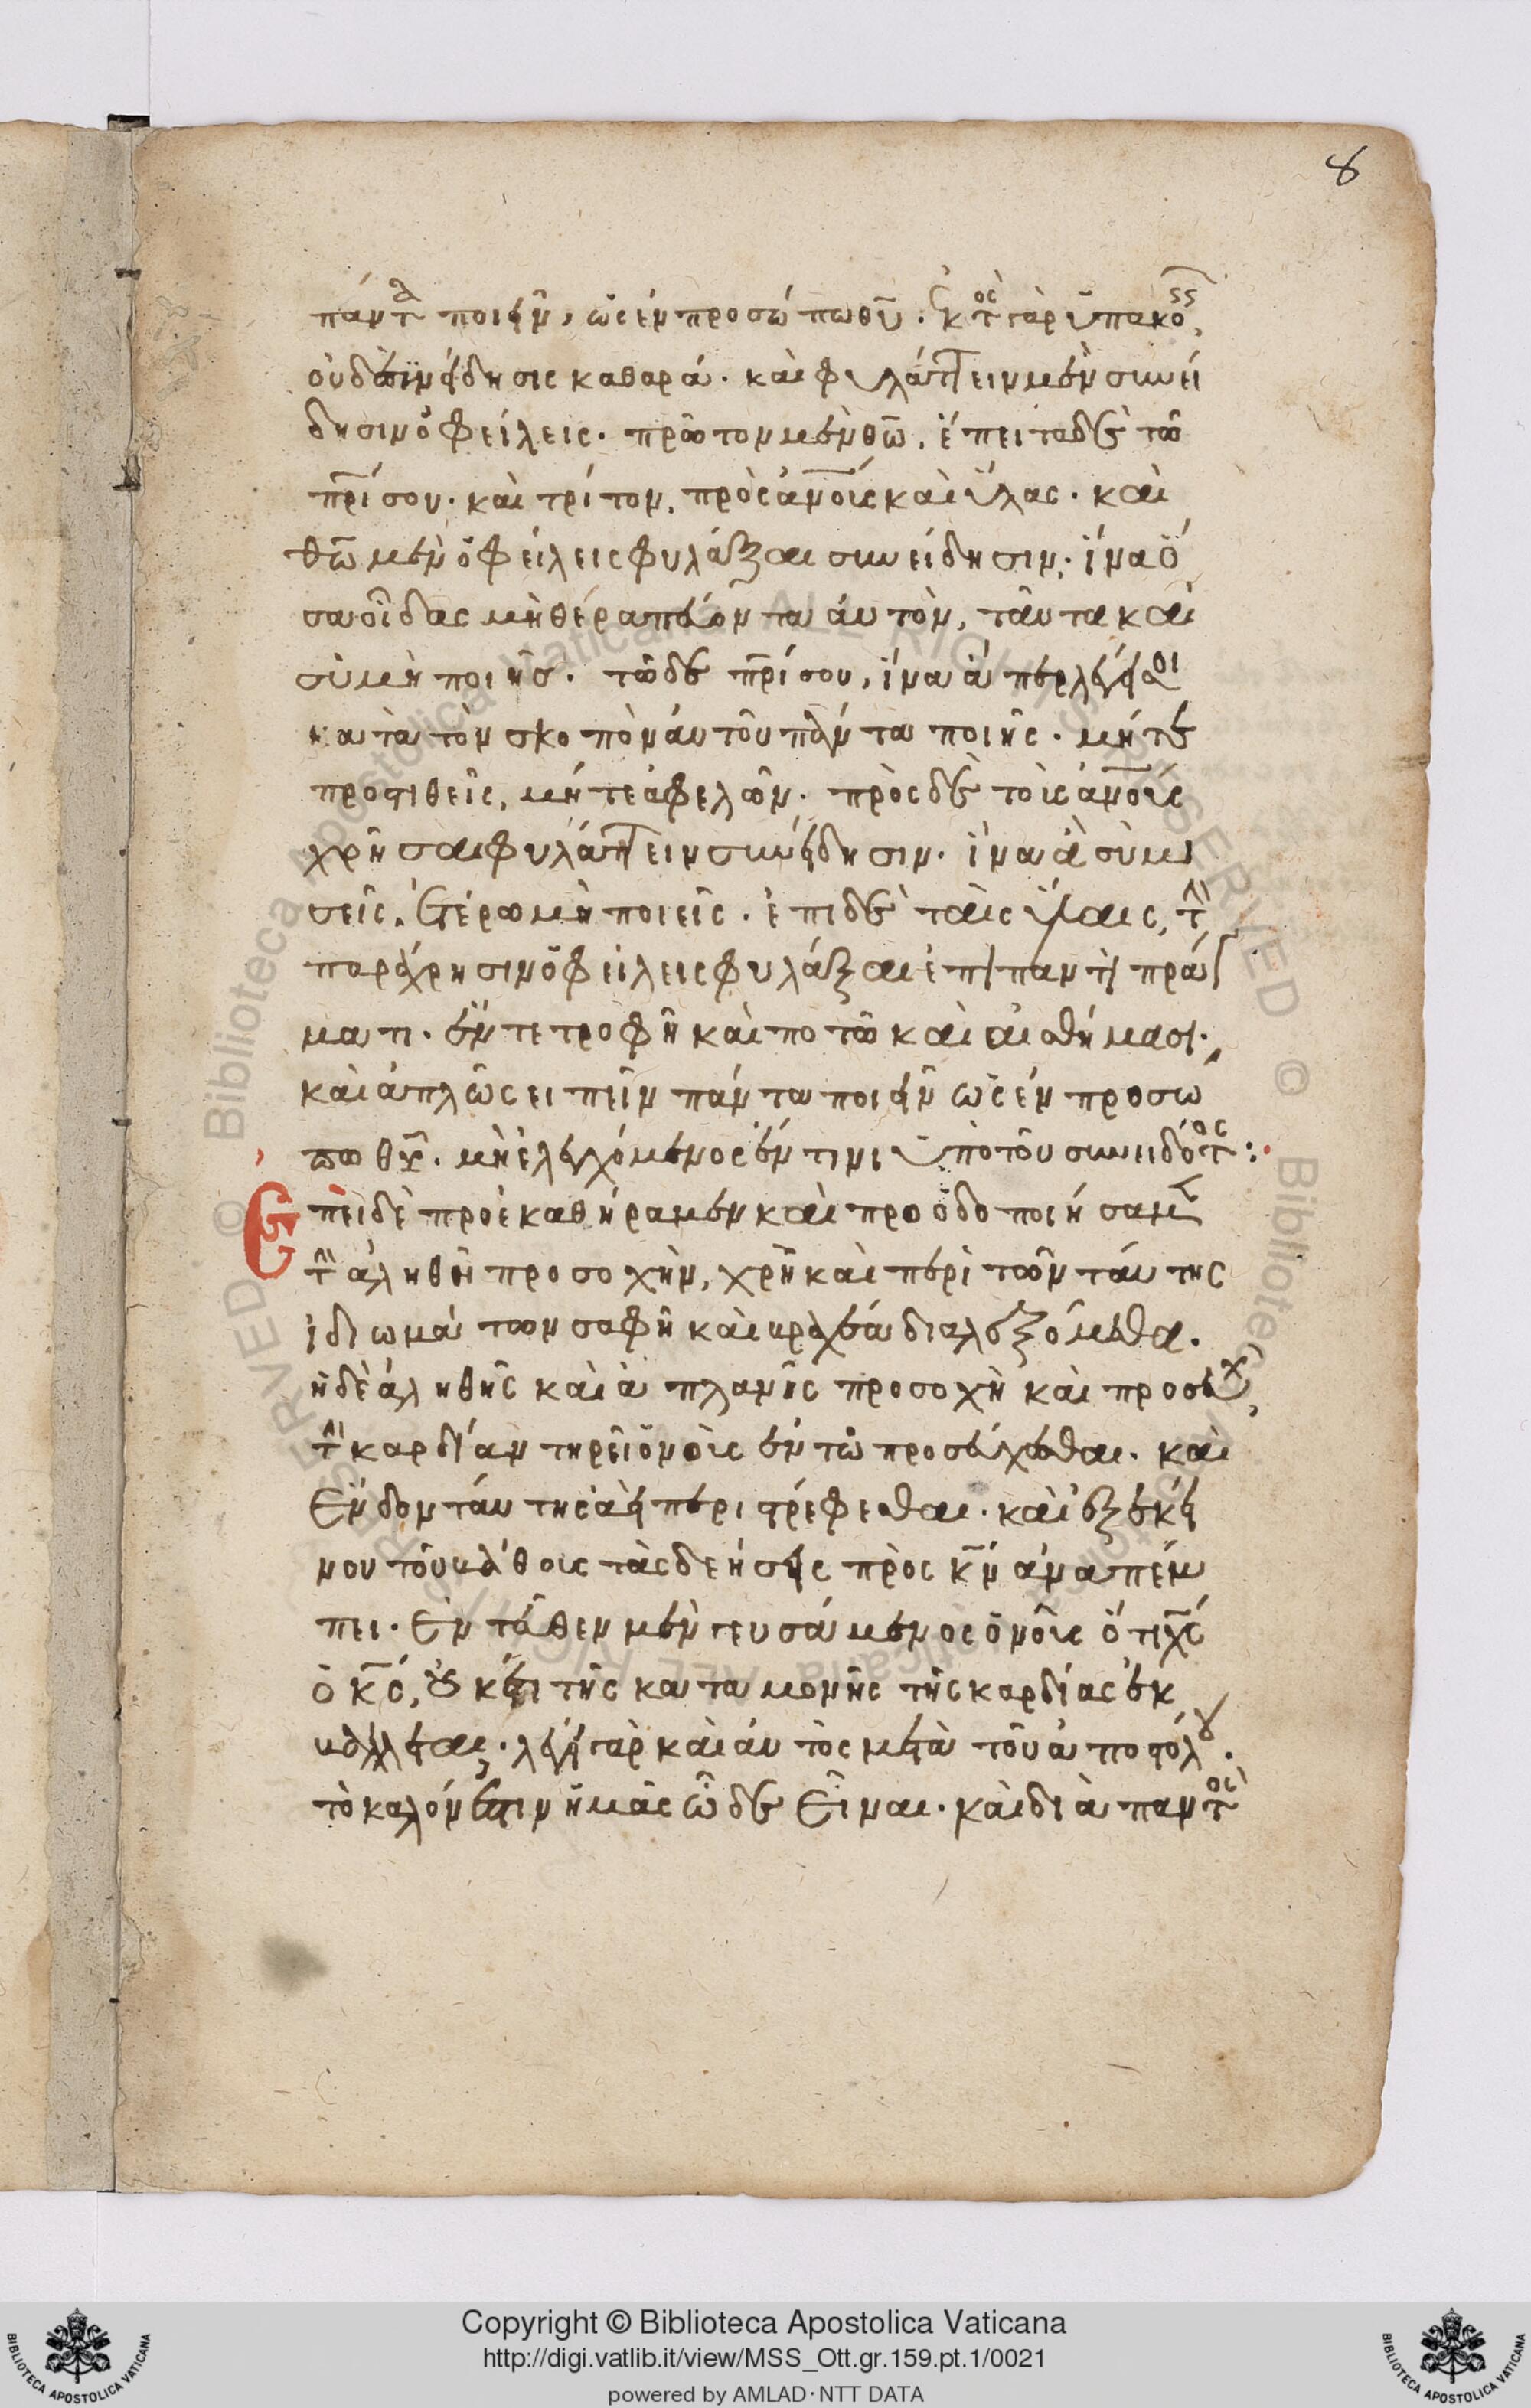 8
πάντα ποιεῖν, ὡς ἐνπροσώπω θυ. ἐκτὸς γὰρ ὑπακοῆς,
οὐδὲ συνείδησις καθαρά. καὶ φυλάττειν μὲν συνεί
δησιν ὀφείλεις. πρῶτον μὲν θῶ. ἔπειτα δὲ τῶ
πρί σου. καὶ τρίτον, πρὸς ἀνοις καὶ ὕλας. καὶ
θῶ μὲν ὀφείλεις φυλάξαι συνείδησιν. ἵνα ὅ
σα οἶδας μὴ θεραπεύοντα αὐτὸν, ταῦτα καὶ
σὺ μὴ ποιῆς. τῶ δὲ πρί σου, ἵνα ἅπερ λέγει σοι
κατὰ τὸν σκοπὸν αὐτοῦ πάντα ποιῆς. μήτε
προστιθεὶς, μήτε ἀφελῶν. πρὸς δὲ τοὺς ἀνους
χρῆ σαι φυλάττειν συνείδησιν. ἵνα ἃ σὺ μι
σεῖς, ἑτέρω μὴ ποιεῖς. ἐπὶ δὲ ταῖς ὕλαις, τὴν
παράχρησιν ὀφείλεις φυλάξαι ἐπὶ παντὶ πράγ
ματι. ἔν τε τροφῆ καὶ ποτῶ καὶ αἰσθήμασι.
καὶ ἁπλῶς εἰπεῖν πάντα ποιεῖν ὡς ἐν προσώ
πω θυ. μὴ ἐλεγχόμενος ἔν τινι ὑπὸ τοῦ συνειδότος:
Ἐπειδὲ προεκαθήραμεν καὶ προοδοποιήσαμεν
τὴν ἀληθῆ προσοχὴν, χρῆ καὶ περὶ τῶν ταύτης
ἰδιωμάτων σαφῆ καὶ βραχέα διαλεξόμεθα.
ἡ δὲ ἀληθὴς καὶ ἀπλανὴς προσοχὴ καὶ προσευχὴ,
τὴν καρδίαν τηρεῖ ὁ νοῦς ἐν τῶ προσεύχεσθαι. καὶ
ἔνδον ταύτης ἀεὶ περιστρέφεσθαι. καὶ ἐξ ἐκεί
νου τοῦ βάθους τὰς δεήσεις πρὸς κν ἀναπέμ
πει. ἐνταῦθεν μὲν γευσάμενος ὁ νοῦς ὅτι χς
ὁ κς, οὐκέτι τῆς καταμονῆς τῆς καρδίας ἐκ
βάλλεται. λέγει γὰρ καὶ αὐτὸς μετὰ τοῦ ἀποστόλου.
τὸ καλόν ἐστιν ἡμᾶς ὧδε εἶναι. καὶ διὰ παντὸς
Copyright © Biblioteca Apostolica Vaticana
http://digi.vatlib.it/view/MSS_Ott.gr.159.pt.1/0021
powered by AMLAD·NTT DATA